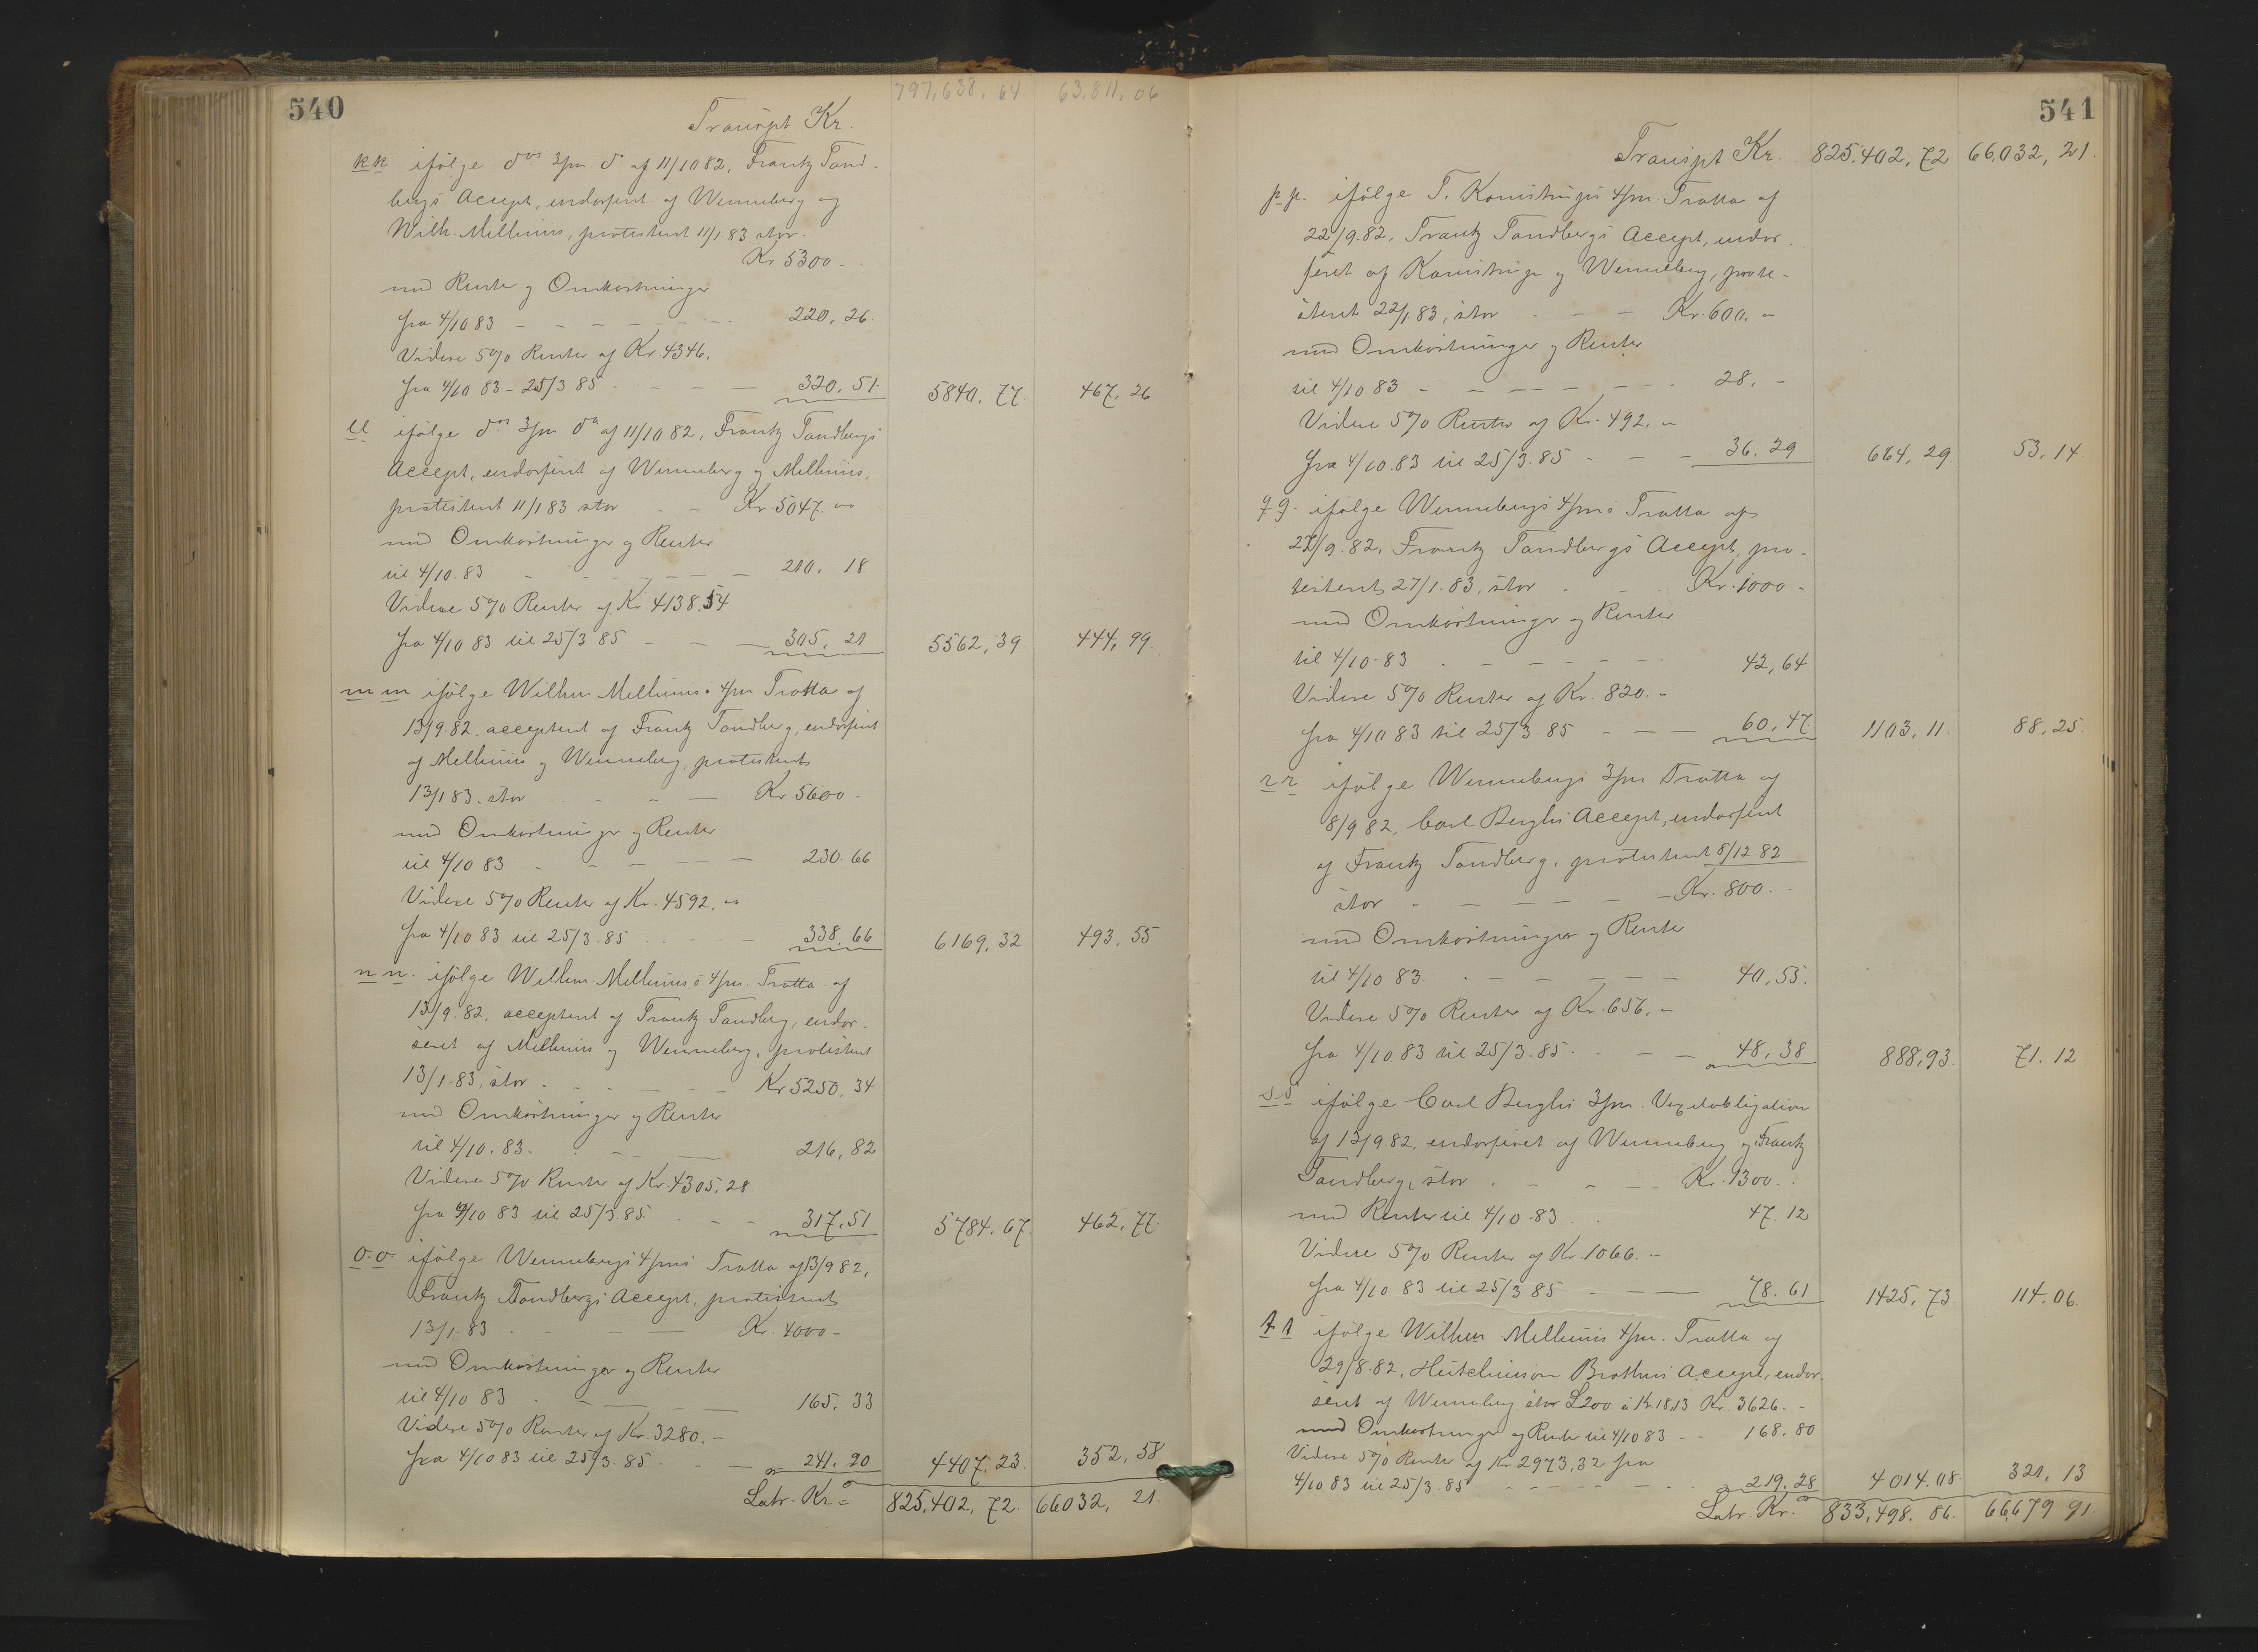 540
797,638.64 63,811,06
Transpt Kr.
kk ifølge do 3/m do af 11/10 82, Frantz Tand-
bergs Accept, endosseret af Wenneberg og
Wilh. Mellenius, protesteret 11/1.83 stor
Kr 5300-
med Renter og Omkostninger
fra 4/10 83 - - - - - - 220,26.
Videre 5% Renter af Kr. 4346.
fra 4/10 83 - 25/3 85 - - - 320.51. 5840.77. 467.26
ll ifølge do 3/m do af 11/10 82, Frantz Tandbergs
Accept, endosseret af Wenneberg og Mellenius,
protesteret 11/1 83 stor - - Kr. 5047. -
med Omkostninger og Renter
til 4/10.83 - - - - - - 210. 18
Videre 5% Renter af Kr. 4138.54
fra 4/10 83 til 25/3 85 - - - 305. 21 5562,39 444,99.
mm ifølge Wilhm Mellenius's 4/m Tratta af
13/9.82. acceptert af Frantz Tandberg, endosseret
af Mellenius og Wenneberg, protesteret
13/1 83. stor - - - Kr. 5600-
med Omkostninger og Renter
til 4/10 83 - - - - - 230.66
Videre 5% Renter af Kr. 4592. -
fra 4/10 83 til 25/3.85 - - - 338.66 6169.32 493.55
nn. ifølge Wilhm Mellenius's 4/m. Tratta af
13/9.82. acceptert af Frantz Tandberg, endos-
seret af Mellenius og Wenneberg, protesteret
13/1.83, stor - - - - Kr 5250.34
med Omkostninger og Renter
til 4/10.83. - - - 216,82
Videre 5% Renter af Kr. 4305.28
fra 4/10 83 til 25/3.85 - - - 317,51 5784.67. 462,77.
o.o. ifølge Wennebergs 4/ms Tratta af 13/9 82,
Frantz Tandbergs Accept, protesteret
13/1.83 - - - Kr. 4000-
med Omkostninger og Renter
til 4/10 83 - - - - 165.33
Videre 5% Renter af Kr. 3280.-
fra 4/10 83 til 25/3.85 - - 241.90 4407.23. 352,58
Latr. Kr. 825,402,72. 66032, 21.
541
Transpt Kr. 825,402,72 66,032,21.
p.p. ifølge T. Kamstrups 4/m Tratta af
22/9.82. Frantz Tandbergs Accept, endos-
seret af Kamstrup og Wenneberg, prote-
steret 22/1 83, stor - - - Kr. 600. -
med Omkostninger og Renter
til 4/10 83 - - - - - - - 28. -
Videre 5% Renter af Kr. 492. -
fra 4/10.83 til 25/3.85 - - - 36.29 664,29. 53.14
qq. ifølge Wennebergs 4/ms Tratta af
27/9.82. Frantz Tandbergs Accept, pro-
testeret 27/1.83, stor - - Kr. 1000-
med Omkostninger og Renter
til 4/10-83 - - - - - - 42,64
Videre 5% Renter af Kr. 820.-
fra 4/10 83 til 25/3.85 - - - 60,47. 1103,11. 88,25.
rr ifølge Wennebergs 3/m Tratta af
8/9 82. Carl Berghs Accept, endosseret
af Frantz Tandberg, protesteret 8/12 82
stor - - - - - - Kr. 800. -
med Omkostninger og Renter
til 4/10 83. - - - - - - 40,55.
Videre 5% Renter af Kr. 656. -
fra 4/10.83 til 25/3.85. - - - 48,38 888,93. 71.12
ss ifølge Carl Berghs 3/m. Vexelobligation
af 13/9 82, endosseret af Wenneberg og Frantz
Tandberg, stor - - - - Kr. 1300. -
med Renter til 4/10-83 - - 47.12
Videre 5% Renter af Kr. 1066. -
fra 4/10 83 til 25/3 85 - - - 78.61 1425,73. 114.06.
tt ifølge Wilhm Mellenius 4/m. Tratta af
29/8.82, Hutchinson Brothers Accept, endos-
seret af Wenneberg stor £200 à Kr. 18,13 Kr. 3626. -
med Omkostninger og Renter til 4/10 83 - - 168.80
Videre 5% Renter af Kr 2973,32 fra
4/10 83 til 25/3.85 - - - - - - 219.28 4014.08. 321,13
Latr. Kr. 833,498.86. 66,679 91.